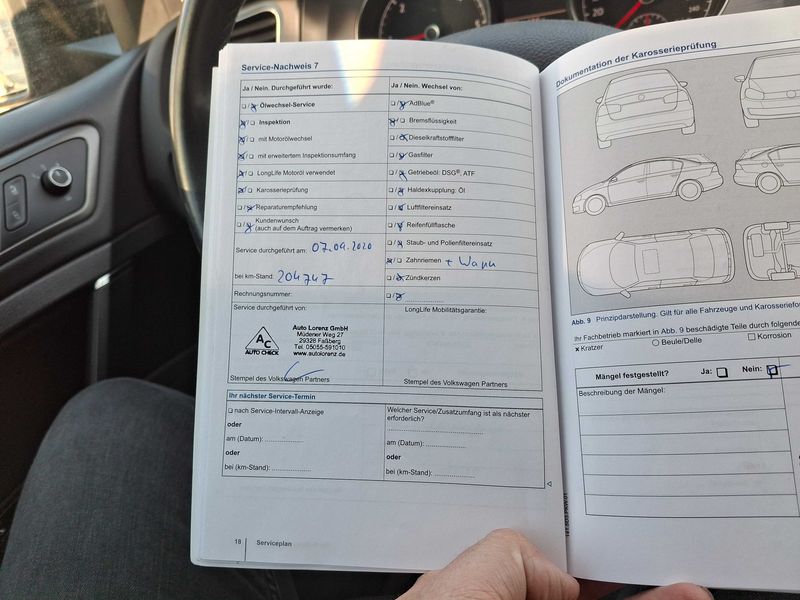 Service-Nachweis 7
Ja / Nein. Durchgeführt wurde:
Ölwechsel-Service
Inspektion
mit Motorölwechsel
mit erweitertem Inspektionsumfang
LongLife Motoröl verwendet
Karosserieprüfung
Reparaturempfehlung
Kundenwunsch
(auch auf dem Auftrag vermerken)
Service durchgeführt am: 07.04.2020
bei km-Stand: 204747
Rechnungsnummer:
Service durchgeführt von:
AC
AUTO CHECK
Auto Lorenz GmbH
Müdener Weg 27
29328 Faßberg
Tel. 05055-591010
www.autolorenz.de
Stempel des Volkswagen Partners
Ja / Nein. Wechsel von:
AdBlue®
Bremsflüssigkeit
Dieselkraftstofffilter
Gasfilter
Getriebeöl: DSG®, ATF
Haldexkupplung: Öl
Luftfiltereinsatz
Reifenfüllflasche
Staub- und Pollenfiltereinsatz
Zahnriemen + Wapu
Zündkerzen
LongLife Mobilitätsgarantie:
Stempel des Volkswagen Partners
Ihr nächster Service-Termin
nach Service-Intervall-Anzeige
oder
am (Datum): ................
oder
bei (km-Stand): ................
Welcher Service/Zusatzumfang ist als nächster
erforderlich?
am (Datum): ................
oder
bei (km-Stand): ................
18 Serviceplan
Dokumentation der Karosserieprüfung
Abb. 9 Prinzipdarstellung. Gilt für alle Fahrzeuge und
Ihr Fachbetrieb markiert in Abb. 9 beschädigte Teile durch
x Kratzer Beule/Delle Korrosion
Mängel festgestellt? Ja: Nein:
Beschreibung der Mängel: